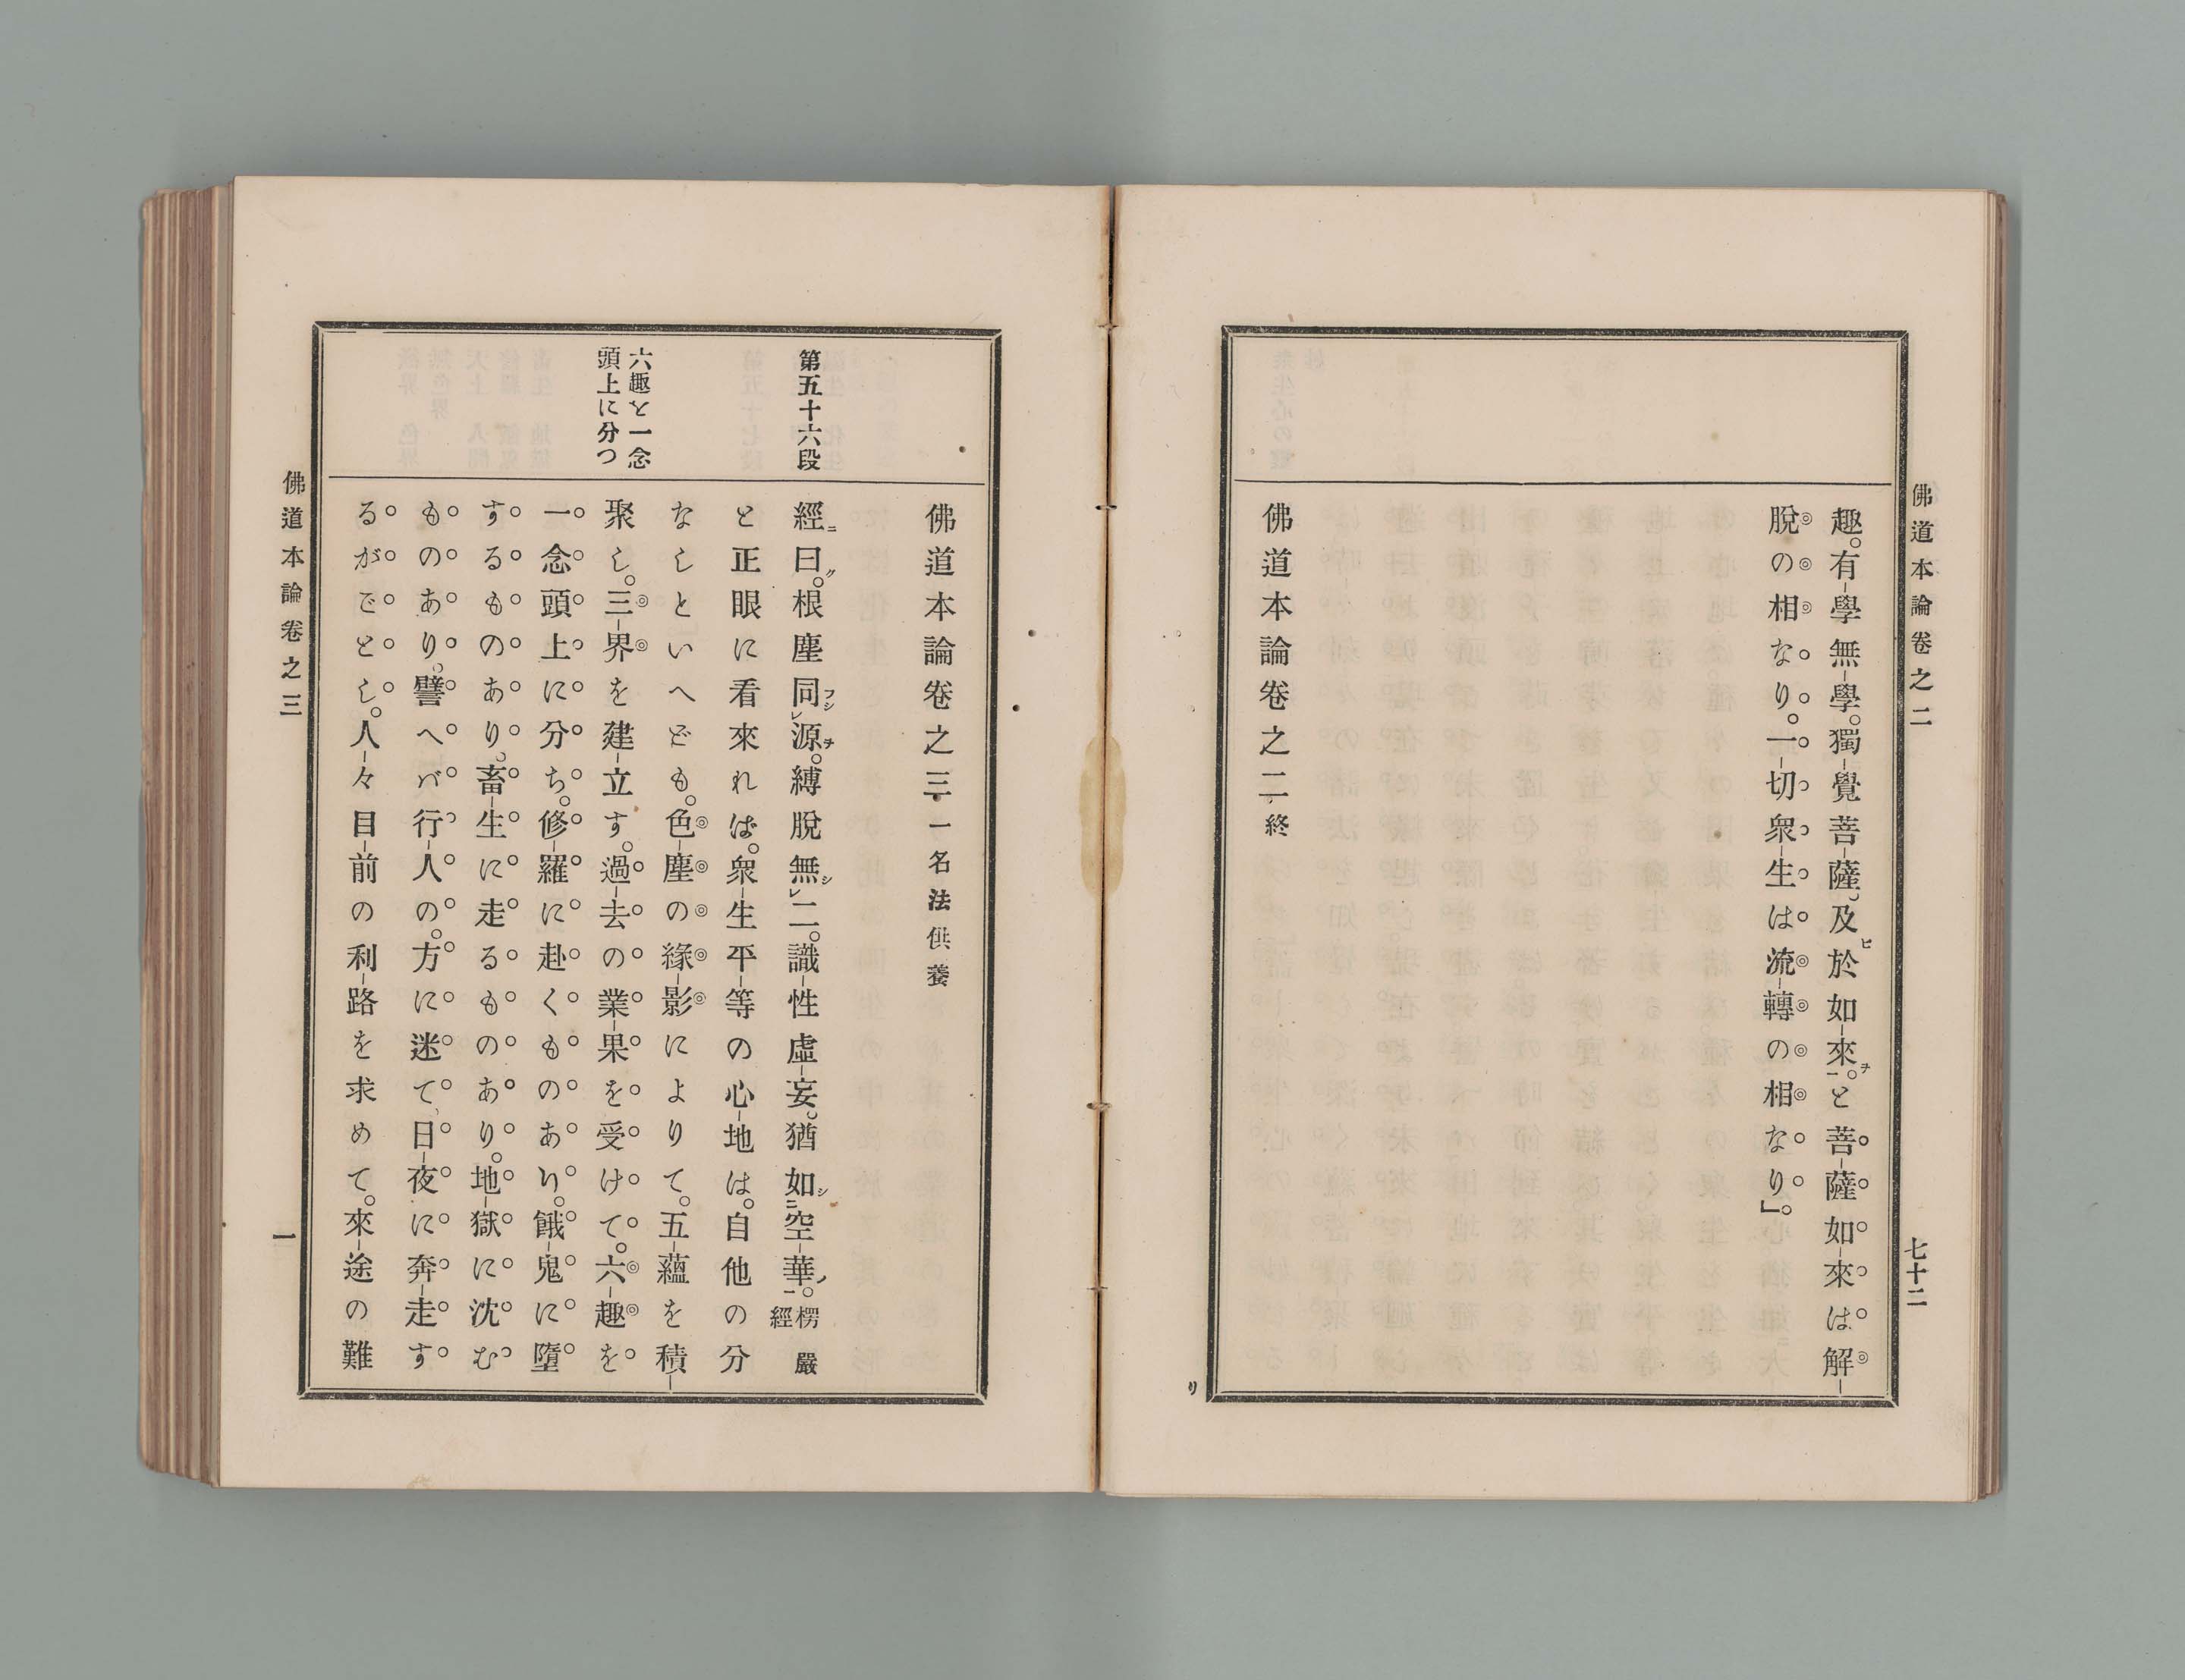 佛道本論卷之二
七十二
趣。有學無學。獨覺菩薩。及ビ於如來ヲ。と菩薩如來は解
脫の相なり。一切衆生は流轉の相なり。」
佛道本論卷之二終
リ
佛道本論卷之三一名法供養
第五十六段
經ニ曰ク。根塵同フシレ源ヲ。縛脫無シレ二。識性虛妄。猶如シ二空華ノ一。楞嚴經
と正眼に看來れば。衆生平等の心地は。自他の分
なしといへども。色塵の緣影によりて。五蘊を積
六趣を一念
頭上に分つ
聚し。三界を建立す。過去の業果を受けて。六趣を
一念頭上に分ち。修羅に赴くものあり。餓鬼に墮
するものあり。畜生に走るものあり。地獄に沈む
ものあり。譬へバ行人の。方に迷て、日夜に奔走す
るがごとし。人々目前の利路を求めて。來途の難
佛道本論卷之三
一